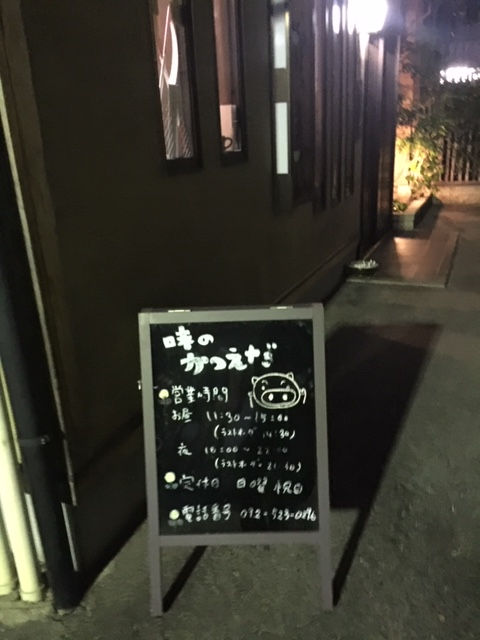 時の
かつえだ
営業時間
お昼 11:30~15:00
(ラストオーダー 14:30)
夜
(ラストオーダー 21:30)
定休日 日曜 祝日
電話番号 092-523-0896